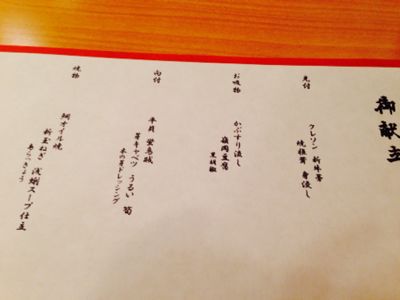 御献立
先付
クレソン 新牛蒡
焼椎茸
お吸物
かぶすり流し
嶺岡豆腐
黒胡椒
向付
平貝 蛍烏賊
芽キャベツ うるい 筍
木の芽ドレッシング
焼物
鯛オイル焼
新玉ねぎ 浅蜊スープ仕立
島らっきょう